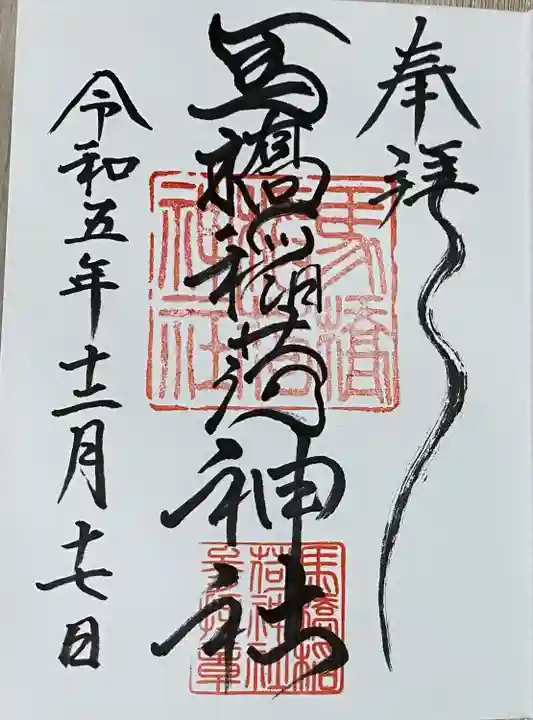 奉拝
馬橋稲荷神社
令和五年十二月十七日
馬橋
稲荷
神社
馬橋稲
荷神社